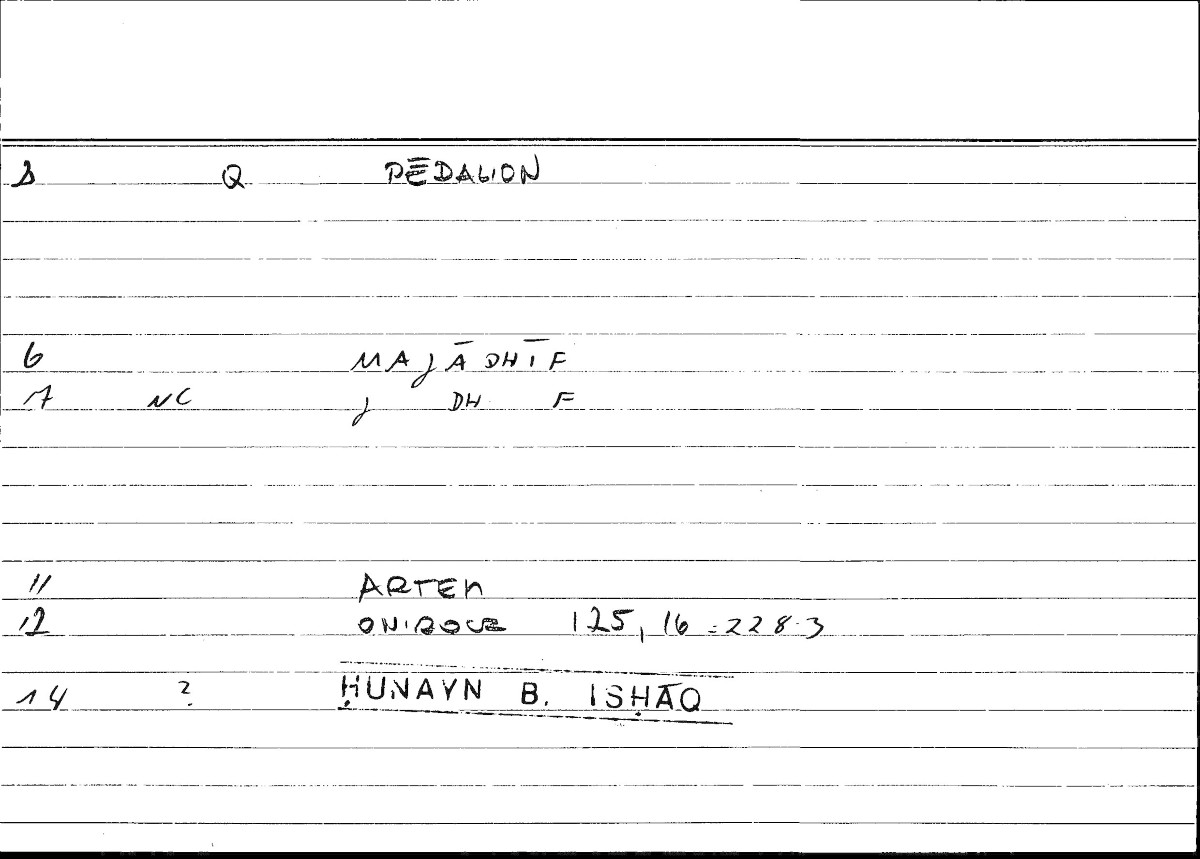 1 Q PĒDALION
6 MAJĀDHĪF
7 NC J DH F
11 ARTEM
12 ONIROCR 125, 16 = 228.3
14 ? ḤUNAYN B. ISḤĀQ